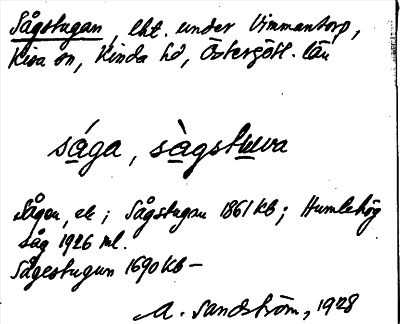 Sågstugan, lht. under Vimmantorp,
Kisa sn, Kinda hd, Östergötl. län
såga, sàgstuwa
Sågen, ek; Sågstugan 1861 kb; Humlehög
såg 1926 ml.
Sågestugun 1690 kb –
A. Sandström, 1928